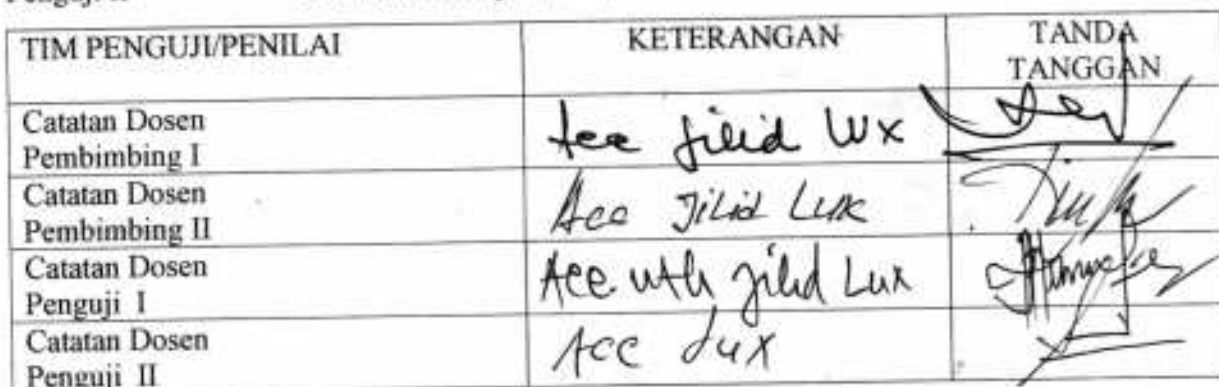 TIM PENGUJI/PENILAI KETERANGAN TANDA
TANGGAN
Catatan Dosen
Pembimbing I
Acc jilid Lux
Catatan Dosen
Pembimbing II
Acc Jilid Lux
Catatan Dosen
Penguji I
Acc utk jilid Lux
Catatan Dosen
Penguji II
Acc Lux